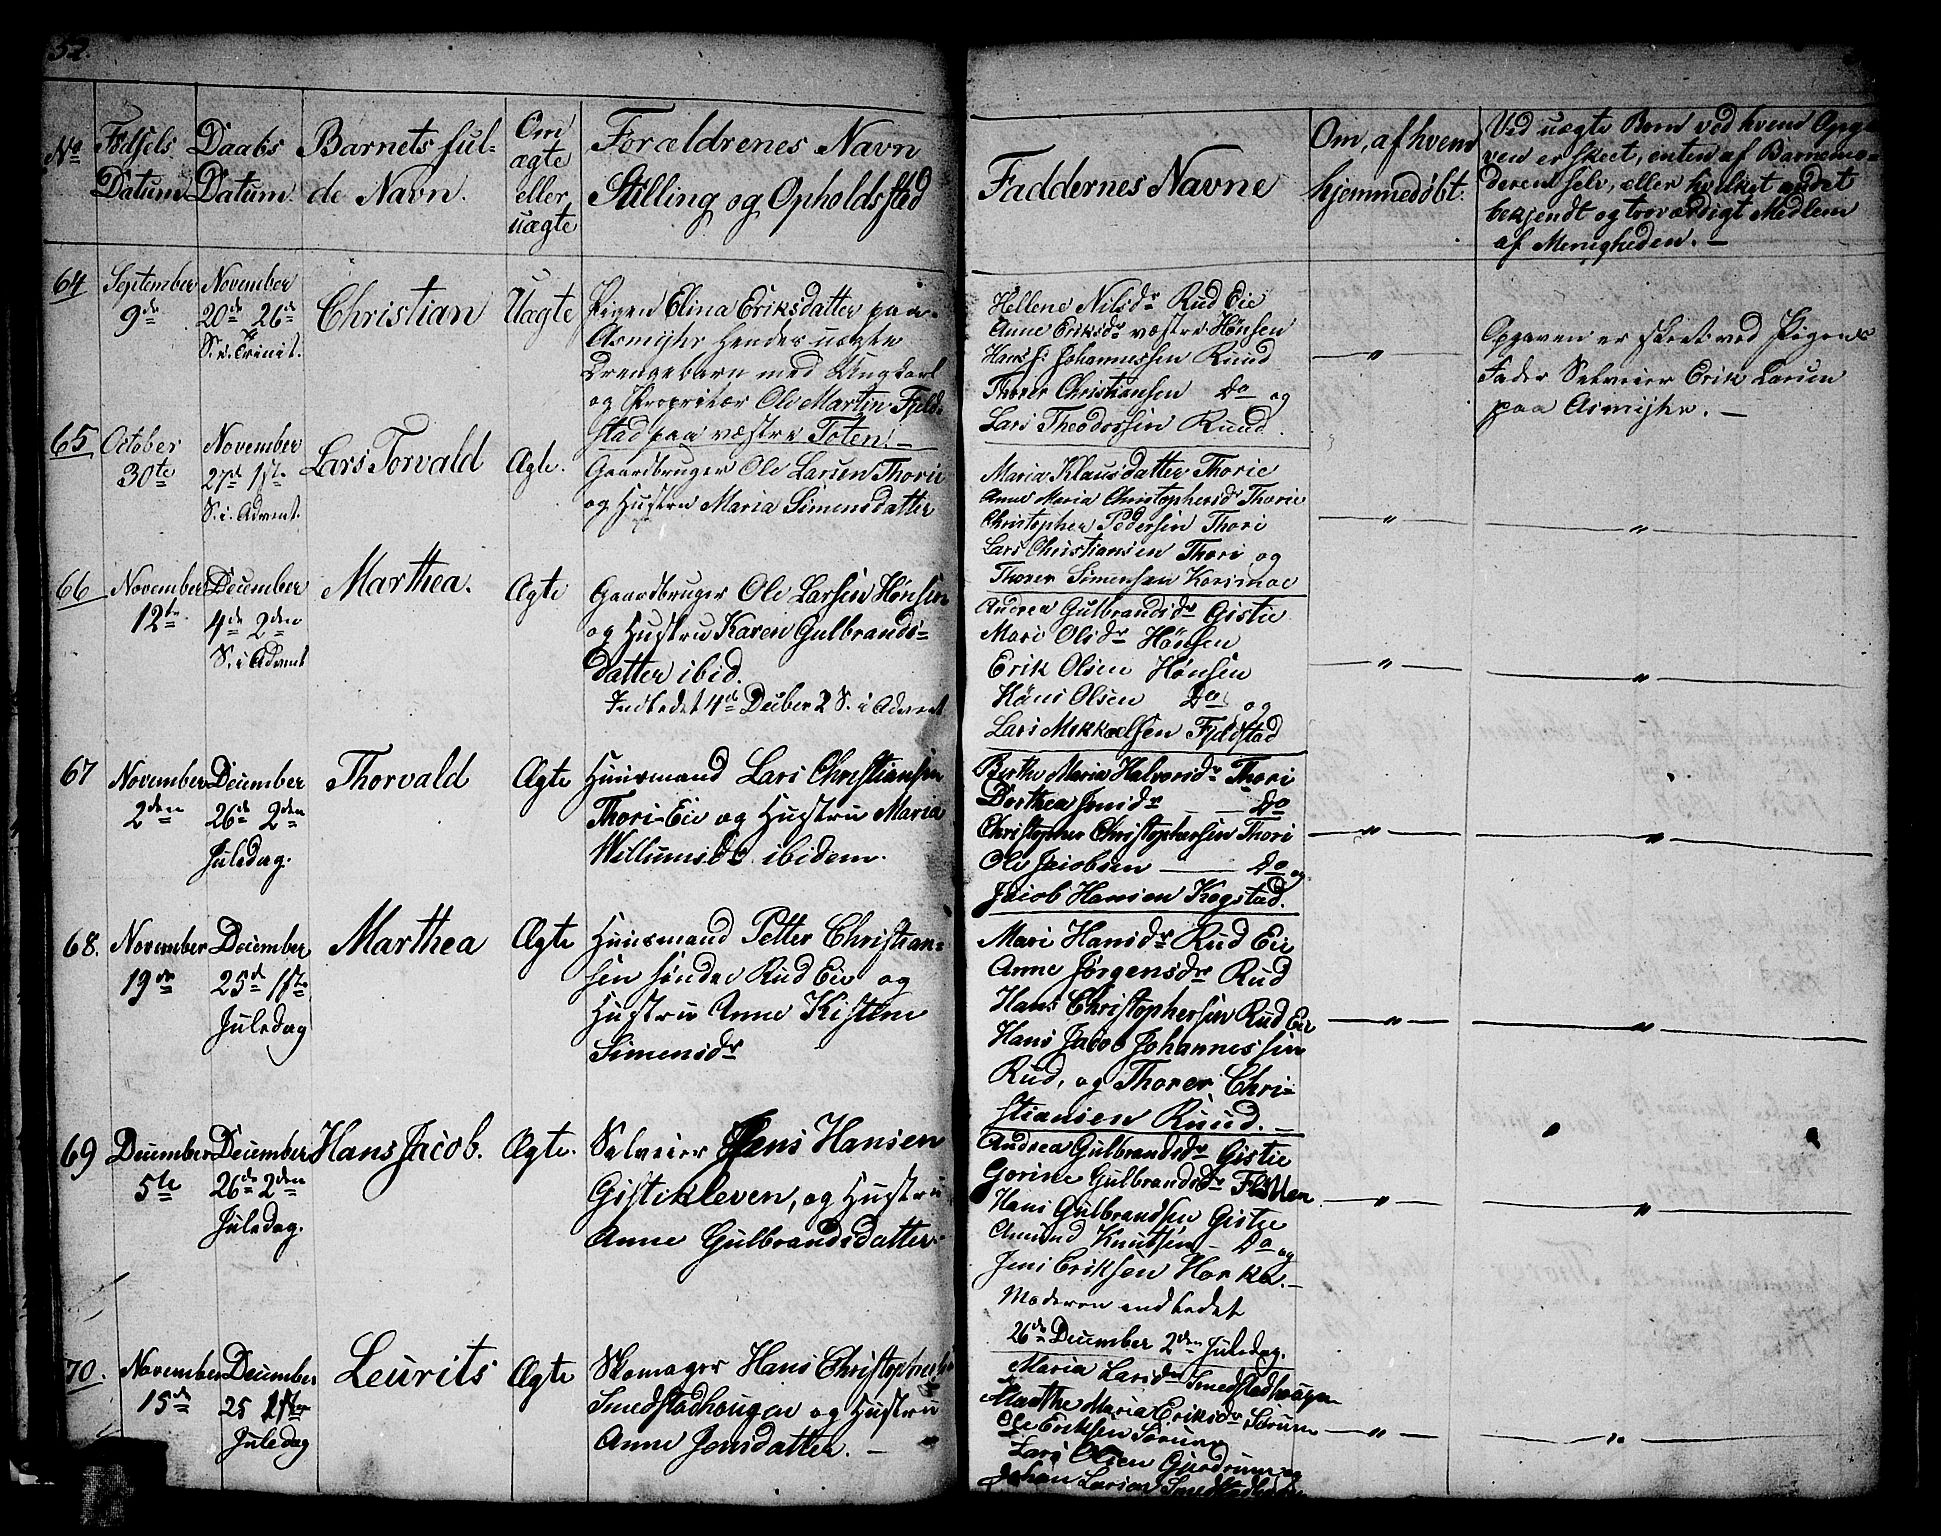 52.
No
Fødsels
Datum
Daabs
Datum
Barnets ful-
de Navn.
Om
ægte
eller
uægte
Forældrenes Navn
Stilling og Opholdssted
Faddernes Navne
Om, af hvem
hjemmedøbt.
Ved uægte Born ved hvem Opga
ven er skeet, enten af Barnemo-
deren selv, eller hvilket andet
bekjendt og troværdigt Medlem
af Menigheden. —
64
September
9de
November
20de 26de
S. e. Trinit.
Christian
Uægte
Pigen Elina Eriksdatter paa
Asmyhr hendes uægte
Drengebarn med Ungkarl
og Proprietær Ole Martin Fjeld-
stad paa væstre Toten. —
Hellene Nilsdr Rud Eie
Anne Eriksdr væstre Hønsen
Hans Johannessen Ruud
Thorer Christiansen Do og
Lars Theodorsen Ruud.
— " —
Opgaven er skeet ved Pigens
Fader Selveier Erik Larsen
paa Asmyhr. —
65
October
30te
November
27de 1ste
S. i. Advent.
Lars Torvald
Ægte.
Gaardbruger Ole Larsen Thorie
og Hustru Maria Simensdatter
Maria Klausdatter Thorie
Anne Maria Christophersdr Thorie
Christopher Pedersen Thori
Lars Christiansen Thori og
Thorer Simensen Korsmoe
— " —
— " —
66
November
12te
December
4de 2den
S. i Advent
Marthea.
Ægte
Gaardbruger Ole Larsen Hønsen
og Hustru Karen Gulbrands-
datter ibid.
Indledet 4de Decber 2 S. i Advent
Andrea Gulbrandsdr Gistie
Mari Olsdr Hønsen
Erik Olsen Hønsen
Hans Olsen Do og
Lars Mekkælsen Fjeldstad
— " —
— " —
67
November
2den
December
26de 2den
Juledag.
Thorvald
Ægte
Huusmand Lars Christiansen
Thori-Eie og Hustru Maria
Willumsdr ibidem.
Birthe Maria Halvorsdr Thori
Dorthea Jensdr — Do
Christopher Christophersen Thori
Ole Jacobsen — Do og
Jacob Hansen Kogstad.
— " —
— " —
68.
November
19de
December
25de 1ste
Juledag
Marthea
Ægte
Huusmand Petter Christian-
sen søndre Rud Eie og
Hustru Anne Kistine
Simensdr
Mari Hansdr Rud Eie
Anne Jørgensdr Rud
Hans Christophersen Rud Eie
Hans Jacob Johannessen
Rud, og Thorer Chri-
stiansen Ruud. —
— " —
— " —
69
December
5te
December
26de 2den
Juledag.
Hans Jacob.
Ægte.
Selveier Jens Hansen
Gistekleven, og Hustru
Anne Gulbrandsdatter.
Andrea Gulbrandsdr Gistie
Gorine Gulbrandsdr
Hans Gulbrandsen Gistie
Amund Knutsen — Do og
Jens Eriksen Horka. —
Moderen indledet
26de December 2den Juledag.
— " —
— " —
70.
November
15de
December
25 1ste
Juledag
Leurits
Ægte
Skomager Hans Christophersen
Smedstadhougen og Hustru
Anne Jensdatter. —
Maria Larsdr Smedstadhougen
Marthe Maria Eriksdr Sørum
Ole Eriksen Sørum
Lars Olsen Gurdrum og
Johan Larsen
— " —
— " —